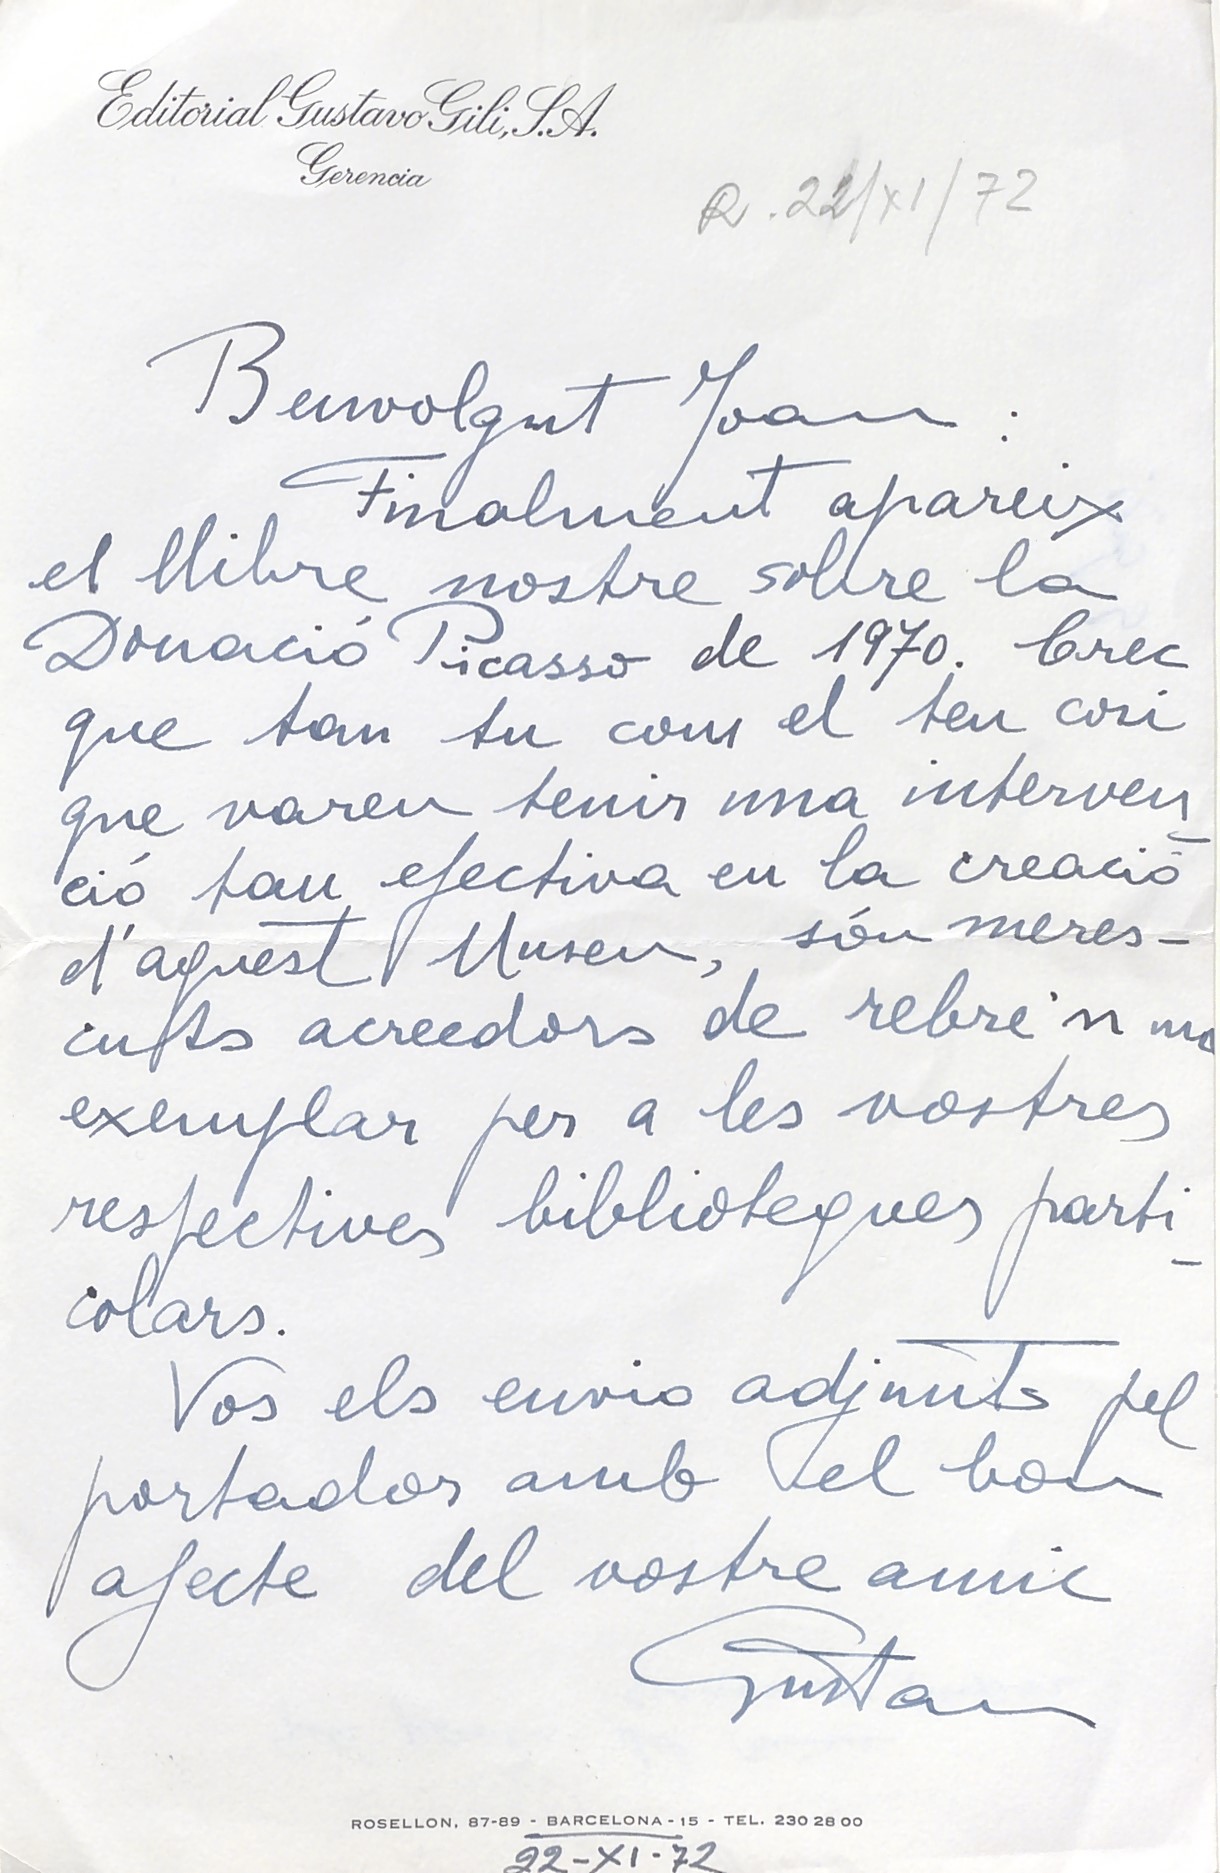 Editorial Gustavo Gili, S.A.
Gerencia
R. 22/XI/72
Benvolgut Joan :
Finalment apareix
el llibre nostre sobre la
Donació Picasso de 1970. Crec
que tan tu com el teu cosí
que varen tenir una interven-
ció tan efectiva en la creació
d'aquest Museu, són meres-
cuts acreedors de rebre'n un
exemplar per a les vostres
respectives biblioteques parti-
colars.
Vos els envio adjunts pel
portador amb el bon
afecte del vostre amic
Gustau
ROSELLON, 87-89 - BARCELONA - 15 - TEL. 230 28 00
22-XI-72